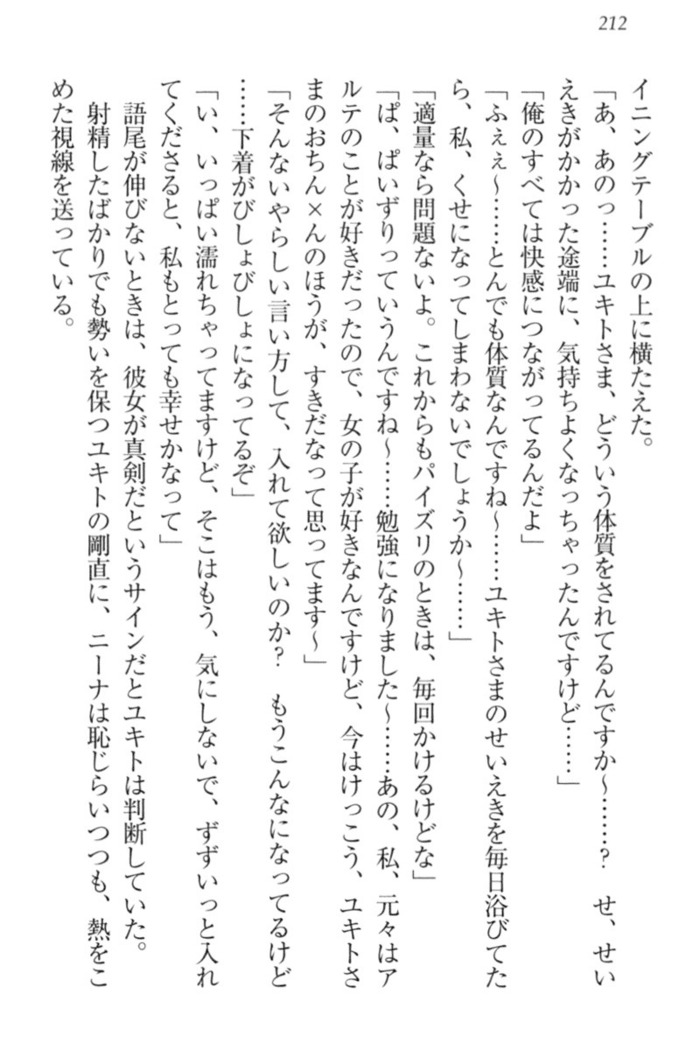 212
イニングテーブルの上に横たえた。
「あ、あのっ……ユキトさま、どういう体質をされてるんですか～……？　せ、せい
えきがかかった途端に、気持ちよくなっちゃったんですけど……」
「俺のすべては快感につながってるんだよ」
「ふぇぇ～……とんでも体質なんですね～……ユキトさまのせいえきを毎日浴びてた
ら、私、くせになってしまわないでしょうか～……」
「適量なら問題ないよ。これからもパイズリのときは、毎回かけるけどな」
「ぱ、ぱいずりっていうんですね～……勉強になりました～……あの、私、元々はア
ルテのことが好きだったので、女の子が好きなんですけど、今はけっこう、ユキトさ
まのおちん×んのほうが、すきだなって思ってます～」
「そんないやらしい言い方して、入れて欲しいのか？　もうこんなになってるけど
……下着がびしょびしょになってるぞ」
「い、いっぱい濡れちゃってますけど、そこはもう、気にしないで、ずずいっと入れ
てくださると、私もとっても幸せかなって」
語尾が伸びないときは、彼女が真剣だというサインだとユキトは判断していた。
射精したばかりでも勢いを保つユキトの剛直に、ニーナは恥じらいつつも、熱をこ
めた視線を送っている。